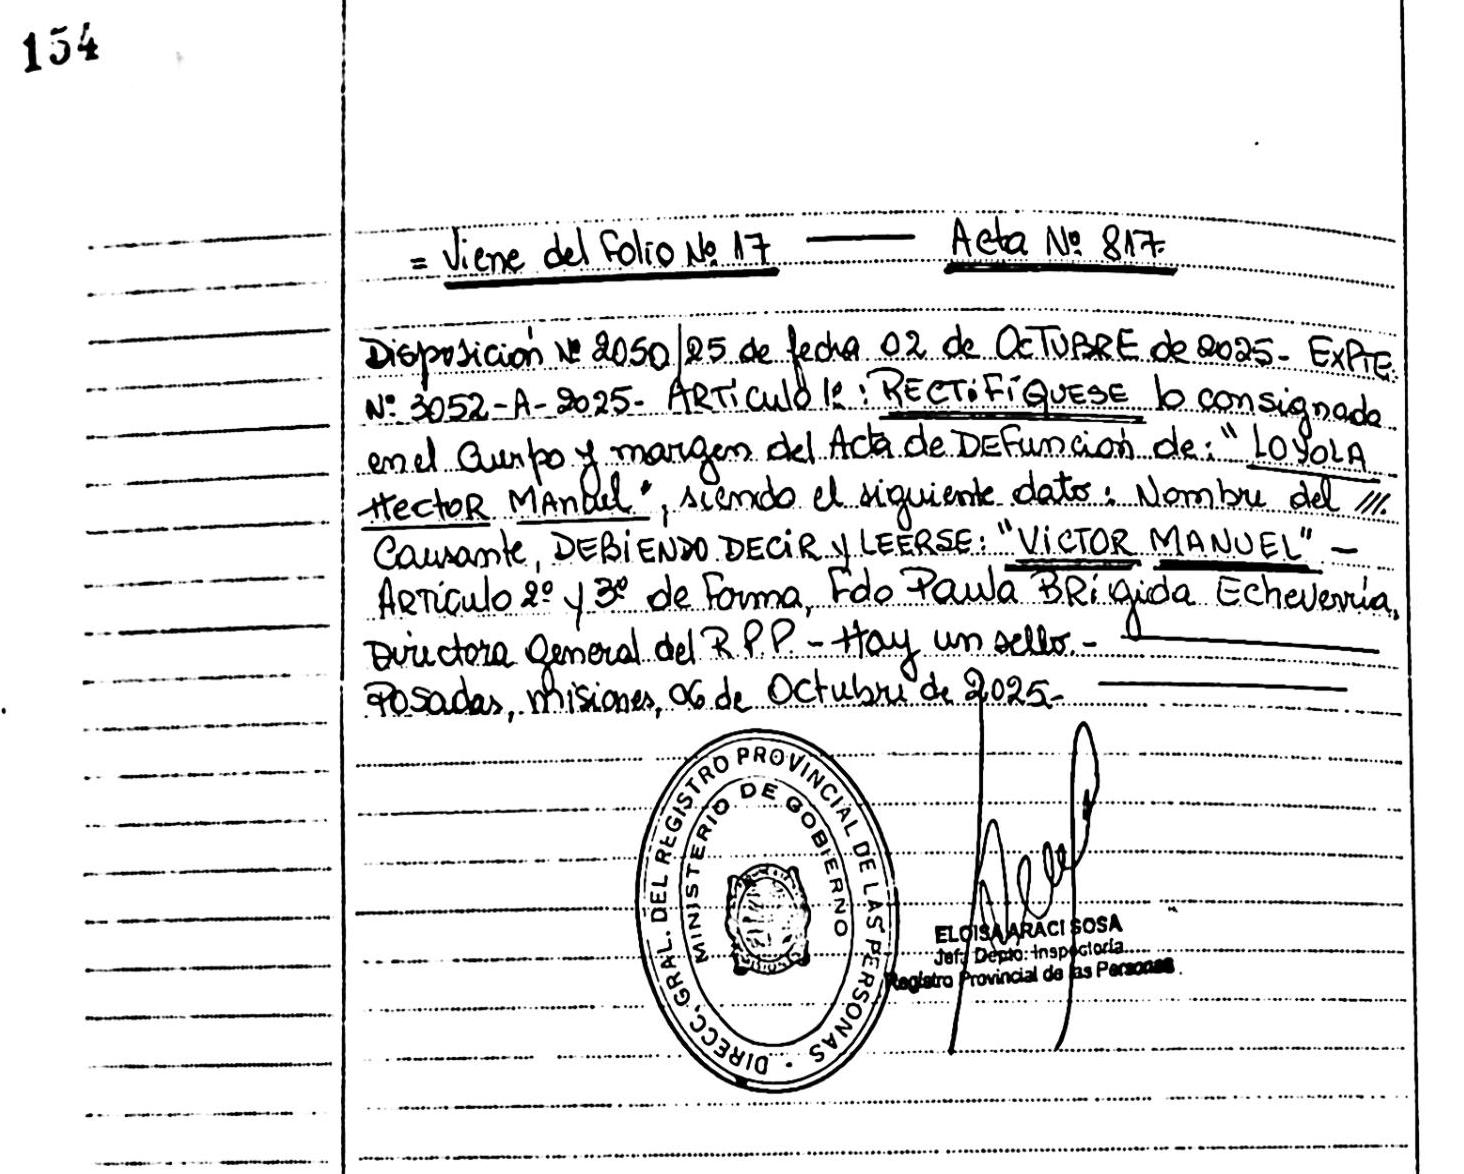 154
= Viene del Folio Nº 17 —— Acta Nº 817.
Disposición Nº 2050/25 de fecha 02 de OCTUBRE de 2025- EXPTE.
Nº 3052-A-2025- ARTículo 1º: RECTiFÍQUESE lo consignado
en el Cuerpo y margen del Acta de DEFunción de: "LOYOLA
HectoR MANuel", siendo el siguiente dato: Nombre del ///.
Causante, DEBiENDO DECiR y LEERSE: "VíCTOR MANUEL" —
ARTículo 2º y 3º de Forma, Fdo Paula BRígida Echeverría,
Directora General del R.P.P. - Hay un sello. -
Posadas, Misiones, 06 de Octubre de 2025-
DIRECC. GRAL. DEL REGISTRO PROVINCIAL DE LAS PERSONAS
MINISTERIO DE GOBIERNO
ELOISA ARACI SOSA
Jef. Depto: Inspectoría
Registro Provincial de las Personas